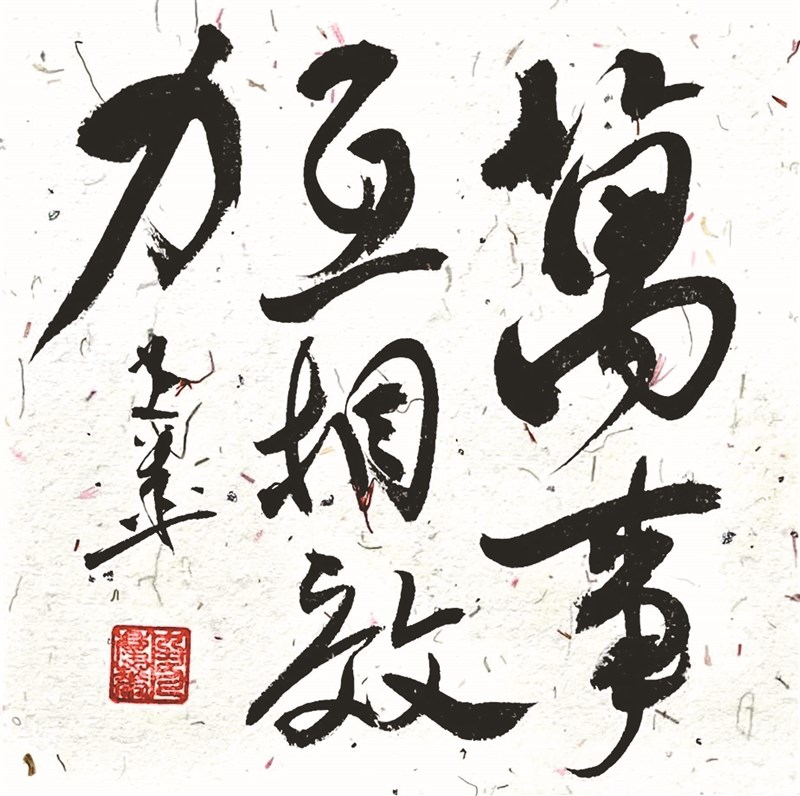 萬事
互相效
力